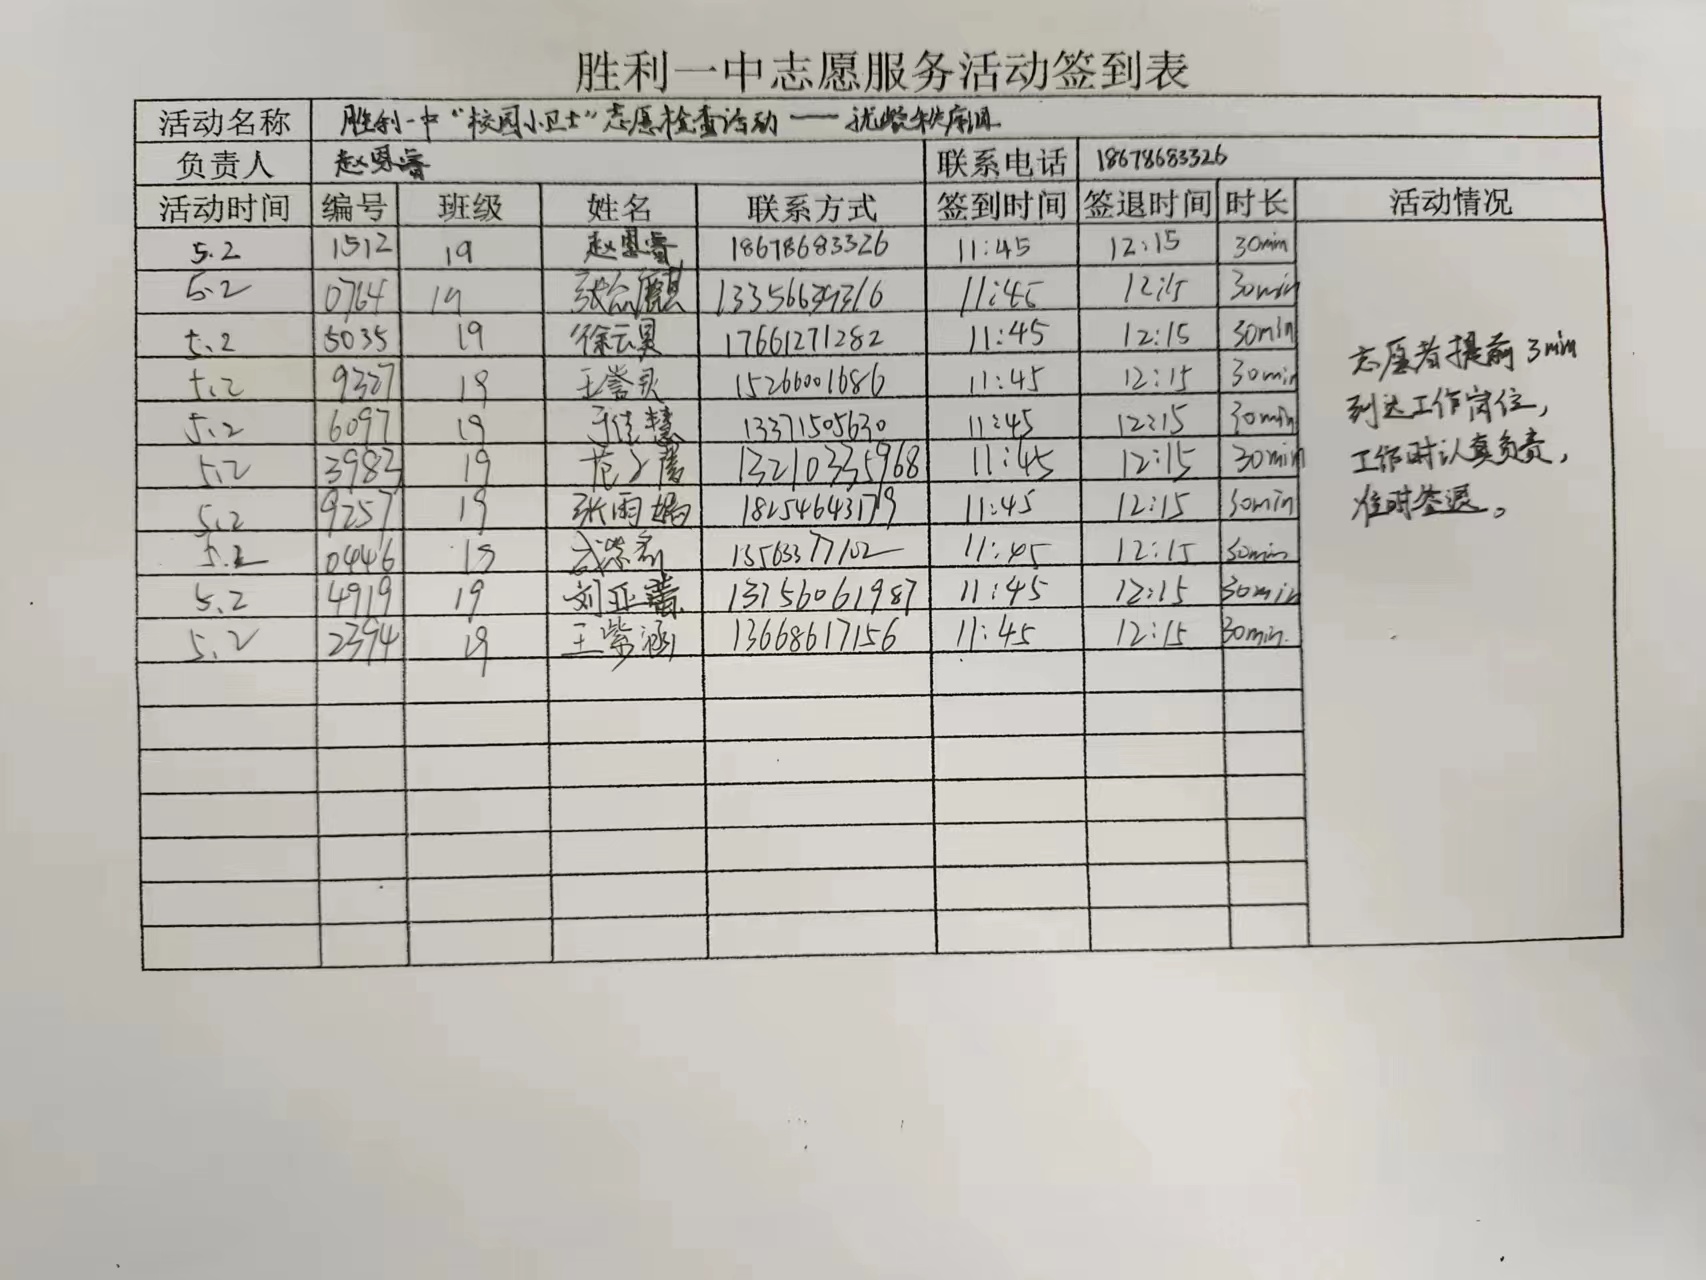 胜利一中志愿服务活动签到表
活动名称 胜利一中“校园小卫士”志愿检查活动——就餐秩序组
负责人 赵恩睿 联系电话 18678683326
活动时间 编号 班级 姓名 联系方式 签到时间 签退时间 时长 活动情况
5.2 1512 19 赵恩睿 18678683326 11:45 12:15 30min
5.2 0764 19 11:45 12:15 30min
5.2 5035 19 徐云昊 17661271282 11:45 12:15 30min
5.2 9327 19 王誉灵 15266001686 11:45 12:15 30min
5.2 6097 19 于佳慧 13371505630 11:45 12:15 30min
5.2 3983 19 13210335968 11:45 12:15 30min
5.2 9257 19 张雨娟 18254643179 11:45 12:15 30min
5.2 0446 19 11:45 12:15 30min
5.2 4919 19 刘亚蕾 11:45 12:15 30min
5.2 2394 19 王紫涵 13668617156 11:45 12:15 30min.
志愿者提前3min
到达工作岗位,
工作时认真负责,
准时签退。